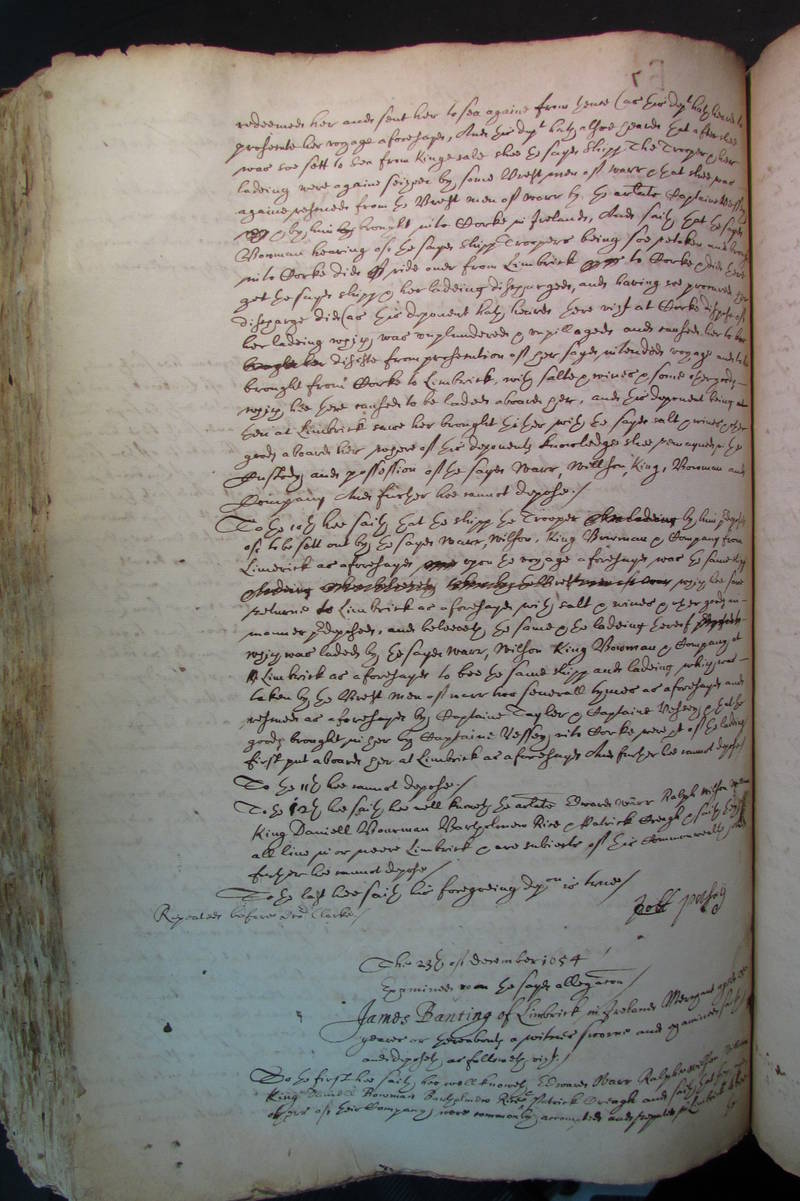 redeemed her and sent her to sea againe from hence (as this dept hath heard to
prosecute her voyage aforesayd, And this dept hath alsoe heard that after shee
was soe sett to sea from Kingesale shee the sayd shipp The Trooper & her
ladeing were againe seized by some Brest men of warr & that shee was
againe rescued from the Brest men of warr by the arlate Captaine
& by him brought into Corke in Ireland, And saith that the sayd
Bowman hearing of the sayd shipp Troopers being soe retaken and brought
into Corke did ride over from Limbrick to Corke & did there
get the sayd shipp & her ladeing discharged, and having soe procured her
discharge did (as this deponent hath heard) there vizt at Corke dispose of
her ladeing which was unplundered & unpillaged and caused her to
desiste from prosecution of her sayd intended voyage and to be
brought from Corke to Limbrick, with salte & wines & some other goods
which hee there caused to be laded aboard her, and this deponent being at
at Limbrick sawe her brought thither with the sayd salt & wines & other
goods aboard her where of this deponents knowledge shee remayned in the
Custody and possession of the sayd Warr, Willson, King, Bowman and
Company And further hee cannot depose./
To the 10th hee saith that the shipp the Trooper by him
of to be sett out by the sayd Warr, Wilson, King Bowman & Company from
Limerick as aforesayd upon the voyage aforesayd was the same shipp
which hee sawe
returne to Limbrick as aforesayd with salt & wines & other goods in
manner predeposed, and beleeveth the same & the ladeing thereof
which was laded by the sayd Warr, Wilson King Bowman & Company at
Limbrick as aforesayd to bee the same shipp and ladeing which was
taken by the Brest men of warr two severall tymes as aforesayd and
rescued as aforesayd by Captaine Tayler & Captaine Vessey & that the
goods brought in her by Captaine Vessey into Corke were pt of the ladeing
first put aboard her at Limbrick as aforesayd And further hee cannot depose/
To the 11th hee cannot depose./
To the 12th hee saith hee well knoweth the arlate Edward Warr Ralph Wilson
King Daniell Bowrman Bartholmew Rice & Patrick Creagh & saith they
all live in or neere Limbrick & are subiects of this Commonwealth
further hee cannot depose/
To the last hee saith his foregoeing depon is true/
Repeated before Dor Clarke/
The 23th of december 1654
Examined upon the sayd allegation/
James Banting of Limbrick in Ireland Merchant aged
yeares or thereabouts a witnes sworne and examined saith
and deposeth as followeth vizt./
To the first hee saith hee well knoweth Edward Warr Ralph Wilson
King Daniell Bowman Bartholmew Rice Patrick Creagh and saith that
others of their Company were commonly accompted and reputed